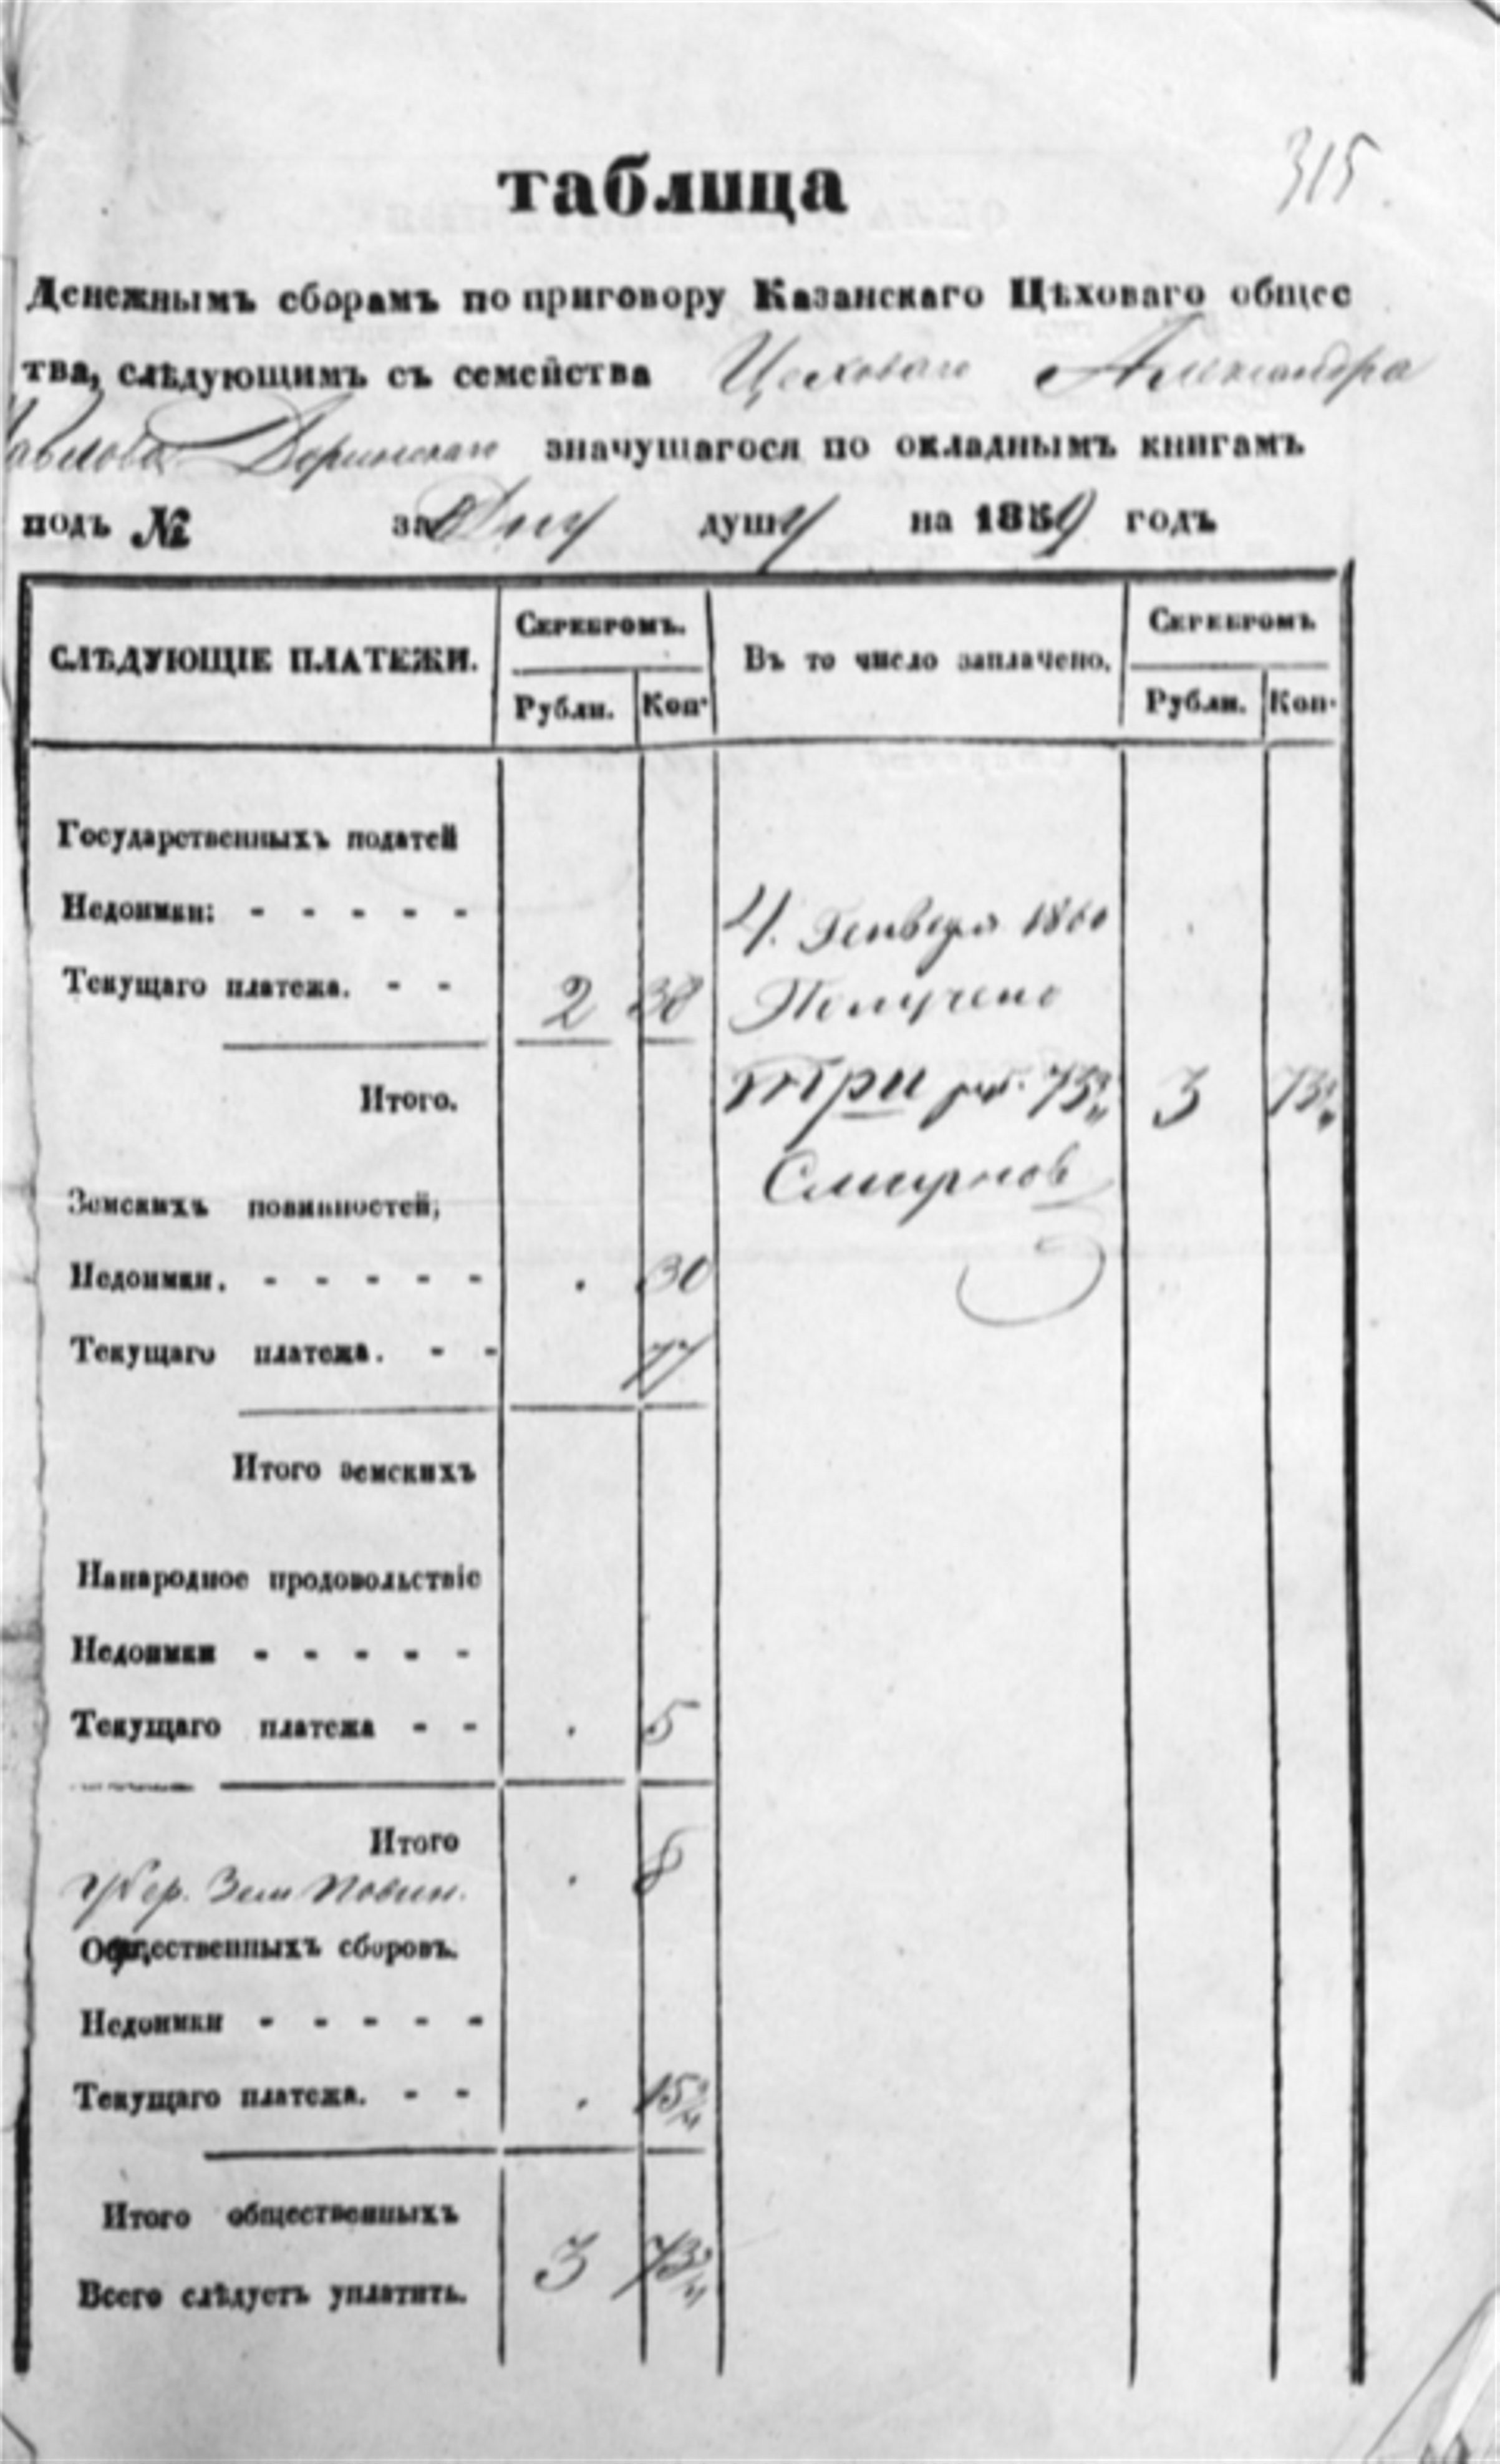 315
таблица
Денежнымъ сборамъ по приговору Казанскаго Цѣховаго общес
тва, слѣдующимъ съ семейства Цеховаго Александра
Павлова значущагося по окладнымъ книгамъ
подъ № за одну душу на 1859 годъ
СЛѢДУЮЩІЕ ПЛАТЕЖИ. Серебромъ. Въ то число заплачено. Серебромъ
Рубли. Коп. Рубли. Коп.
Государственныхъ податей
Недоимки: - - - - -
4. Генваря 1860
Текущаго платежа. - - 2 38 Получено
Итого. три руб. 73 3/4 3 73 3/4
Смирнов
Земскихъ повинностей,
Недоимки. - - - - - . 30
Текущаго платежа. - - 77
Итого земскихъ
Нанародное продовольствіе
Недоимки - - - - -
Текущаго платежа - - . 5
Итого
Губер. Зем Повин. . 8
Общественныхъ сборовъ.
Недоимки - - - - -
Текущаго платежа. - - . 15 3/4
Итого общественныхъ
Всего слѣдуетъ уплатить. 3 73 3/4